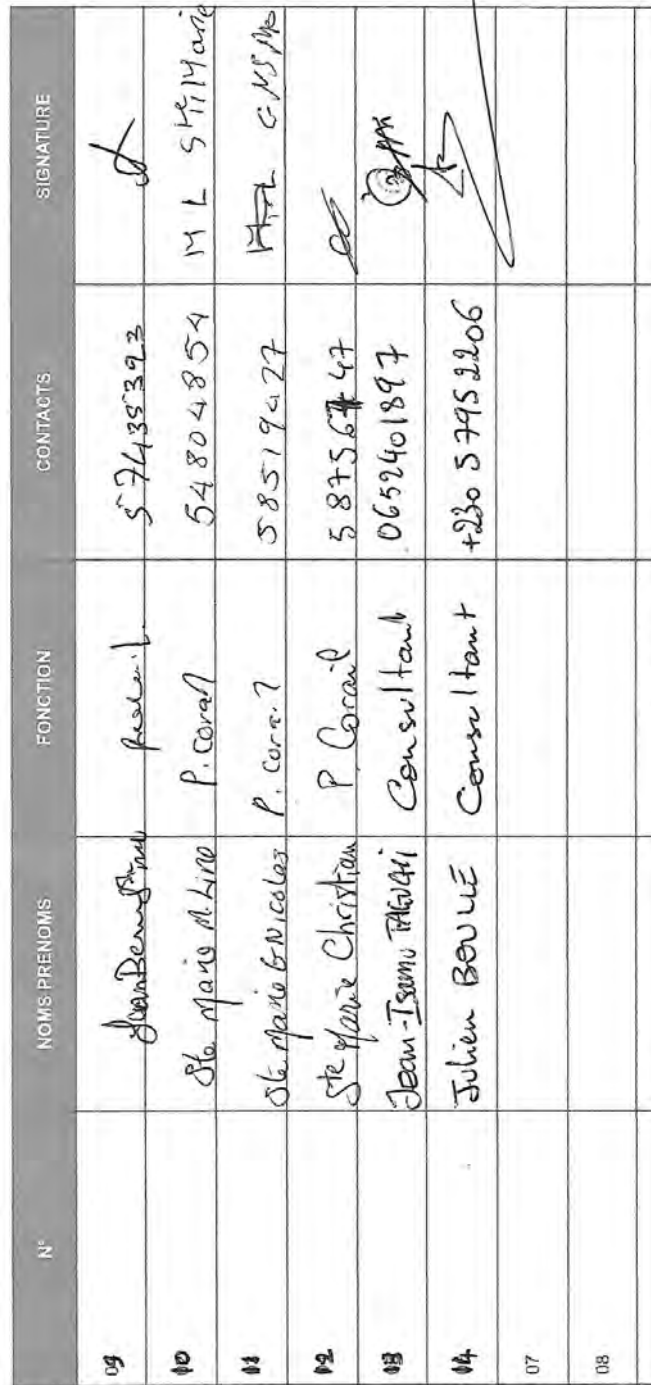 N° NOMS-PRENOMS FONCTION CONTACTS SIGNATURE
09 57435393
10 Ste Marie M. Line P. Corail 54804854 M L Ste Marie
11 Ste Marie G Nicoles P. Corail 58519427
12 Ste Marie Christian P. Corail 5875 47
13 Jean-Isamu TAGUCHI Consultant 0652401897
14 Julien BOULLÉ Consultant +230 57952206
07
08